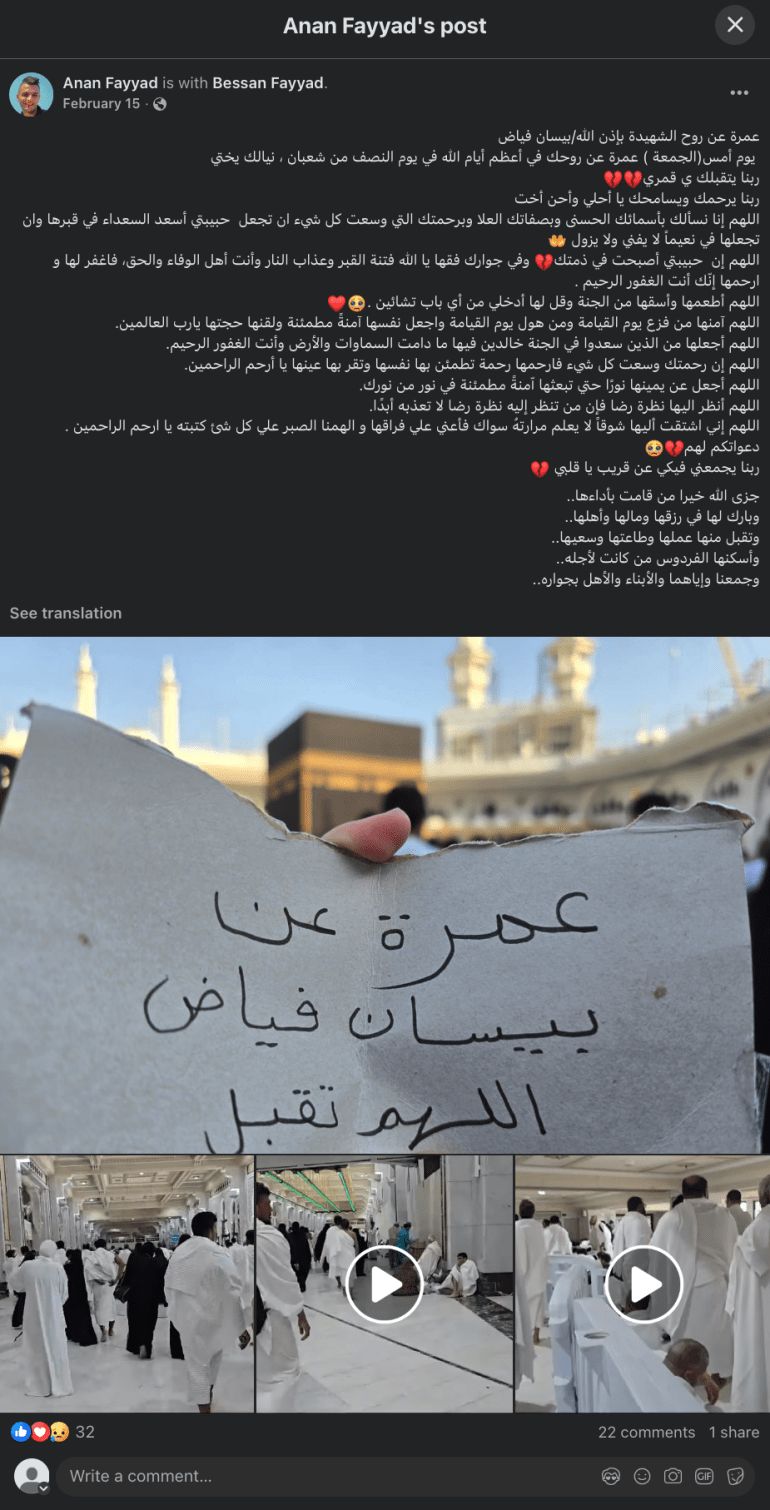 Anan Fayyad's post
Anan Fayyad is with Bessan Fayyad.
February 15
عمرة عن روح الشهيدة بإذن الله/بيسان فياض
يوم أمس(الجمعة ) عمرة عن روحك في أعظم أيام الله في يوم النصف من شعبان ، نيالك يختي
ربنا يتقبلك ي قمري💔💔
ربنا يرحمك ويسامحك يا أحلي وأحن أخت
اللهم إنا نسألك بأسمائك الحسنى وبصفاتك العلا وبرحمتك التي وسعت كل شيء ان تجعل حبيبتي أسعد السعداء في قبرها وان
تجعلها في نعيماً لا يفني ولا يزول 🤲
اللهم إن حبيبتي أصبحت في ذمتك💔 وفي جوارك فقها يا الله فتنة القبر وعذاب النار وأنت أهل الوفاء والحق، فاغفر لها و
ارحمها إنّك أنت الغفور الرحيم .
اللهم أطعمها وأسقها من الجنة وقل لها أدخلي من أي باب تشائين .🥹❤️
اللهم آمنها من فزع يوم القيامة ومن هول يوم القيامة واجعل نفسها آمنةً مطمئنة ولقنها حجتها يارب العالمين.
اللهم أجعلها من الذين سعدوا في الجنة خالدين فيها ما دامت السماوات والأرض وأنت الغفور الرحيم.
اللهم إن رحمتك وسعت كل شيء فارحمها رحمة تطمئن بها نفسها وتقر بها عينها يا أرحم الراحمين.
اللهم أجعل عن يمينها نورًا حتي تبعثها آمنةً مطمئنة في نور من نورك.
اللهم أنظر اليها نظرة رضا فإن من تنظر إليه نظرة رضا لا تعذبه أبدًا.
اللهم إني اشتقت أليها شوقاً لا يعلم مرارتهُ سواك فأعني علي فراقها و الهمنا الصبر علي كل شئ كتبته يا ارحم الراحمين .
دعواتكم لهم💔🥹
ربنا يجمعني فيكي عن قريب يا قلبي 💔
جزى الله خيرا من قامت بأداءها..
وبارك لها في رزقها ومالها وأهلها..
وتقبل منها عملها وطاعتها وسعيها..
وأسكنها الفردوس من كانت لأجله..
وجمعنا وإياهما والأبناء والأهل بجواره..
See translation
عمرة عنا
بيسان فياض
اللهم تقبل
32
22 comments 1 share
Write a comment...
GIF